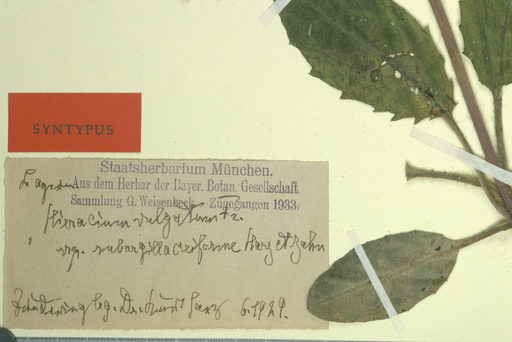 SYNTYPUS
Staatsherbarium München.
Aus dem Herbar der Bayer. Botan. Gesellschaft
Sammlung G. Weisenbeck. Zugegangen 1933
Hieracium vulgatum Fr.
ssp. subargillaceiforme Harz et Zahn
Harz 6.1929.